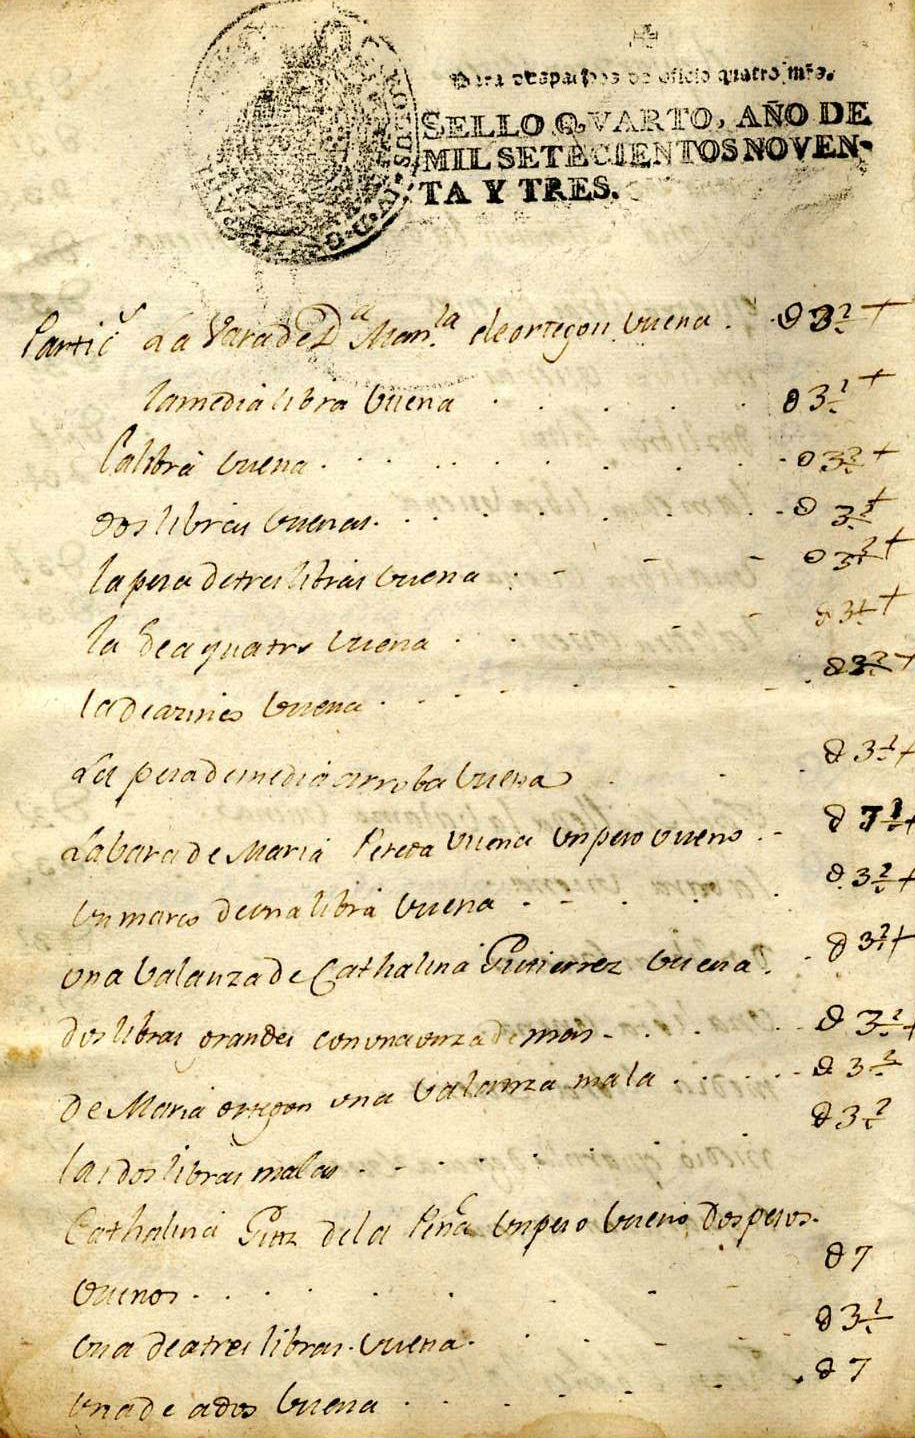 Para despachos de oficio quatro mrs.
SELLO QVARTO, AÑO DE
MIL SETECIENTOS NOVEN-
TA Y TRES.
La Vara de Da Manla de ortegon buena . 03½ +
la media libra buena . . . . 03½ +
la libra buena . . . . . . 03½ +
dos libras buenas . . . . . 03½ +
la pesa de tres libras buena . - - - 03½ +
la de a quatro buena . . - - 03½ +
la de azinco buena . . . . - 03½ +
La pesa de media arroba buena . . . 03½ +
La bara de Maria Pereda buena un peso bueno . - 03½ +
un marco de una libra buena . - . . . 03½ +
una balanza de Cathalina Gutierrez buena . . 03½ +
dos libras grandes con una onza de mas - . . . 03½ +
de Maria ortegon una balanza mala . . . . 03½
las dos libras malas . . . . . 03½
Cathalina Gutz de la Peña un peso bueno, dos pesos.
buenos . . . . . . - - 07
una de a tres libras . buena . . . - - 03½
una de a dos buena . . . - - . 07